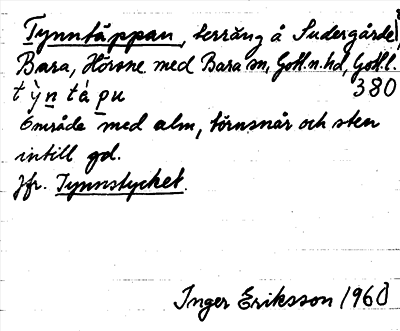 Tynntäppan, terräng å Sudergårde,
Bara, Hörsne med Bara sn, Gotl.n.hd, Gotl.l.
380
tỳn tá pu
Område med alm, törnsnår och sten
intill gd.
Jfr. Tynnstycket.
Inger Eriksson 1960